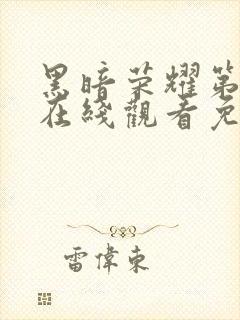 黑暗荣耀第
在綫觀看免
雷偉東